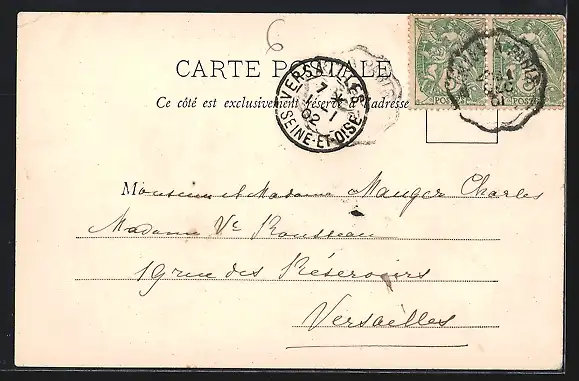 6
CARTE POSTALE
Ce côté est exclusivement réservé à l'adresse
VERSAILLES
7
1
02
SEINE-ET-OISE
DEC
01
5 POSTES 5
Monsieur et Madame Mauger Charles
Madame Ve Rousseau
19 rue des Réservoirs
Versailles